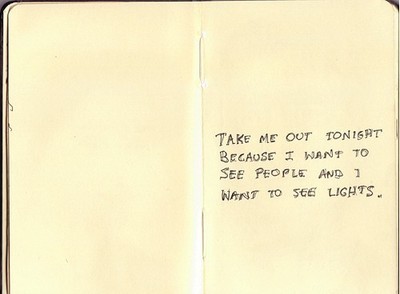 TAKE ME OUT TONIGHT
BECAUSE I WANT TO
SEE PEOPLE AND I
WANT TO SEE LIGHTS.